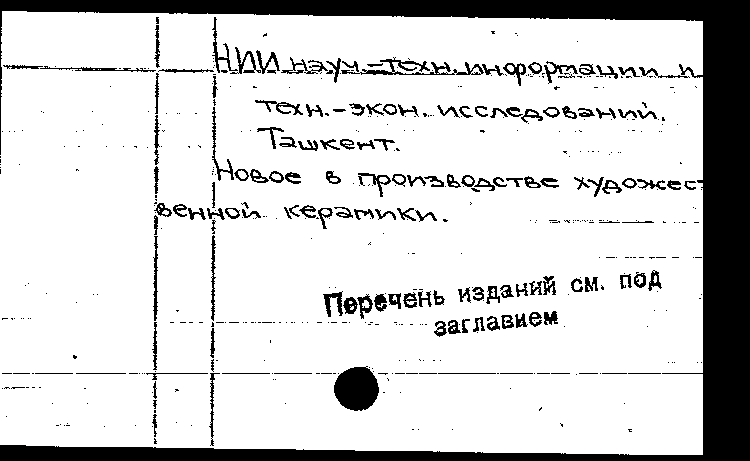 НИИ науч.-техн. информации и
техн.-экон. исследований.
Ташкент.
Новое в производстве художест
венной керамики.
Перечень изданий см. под
заглавием